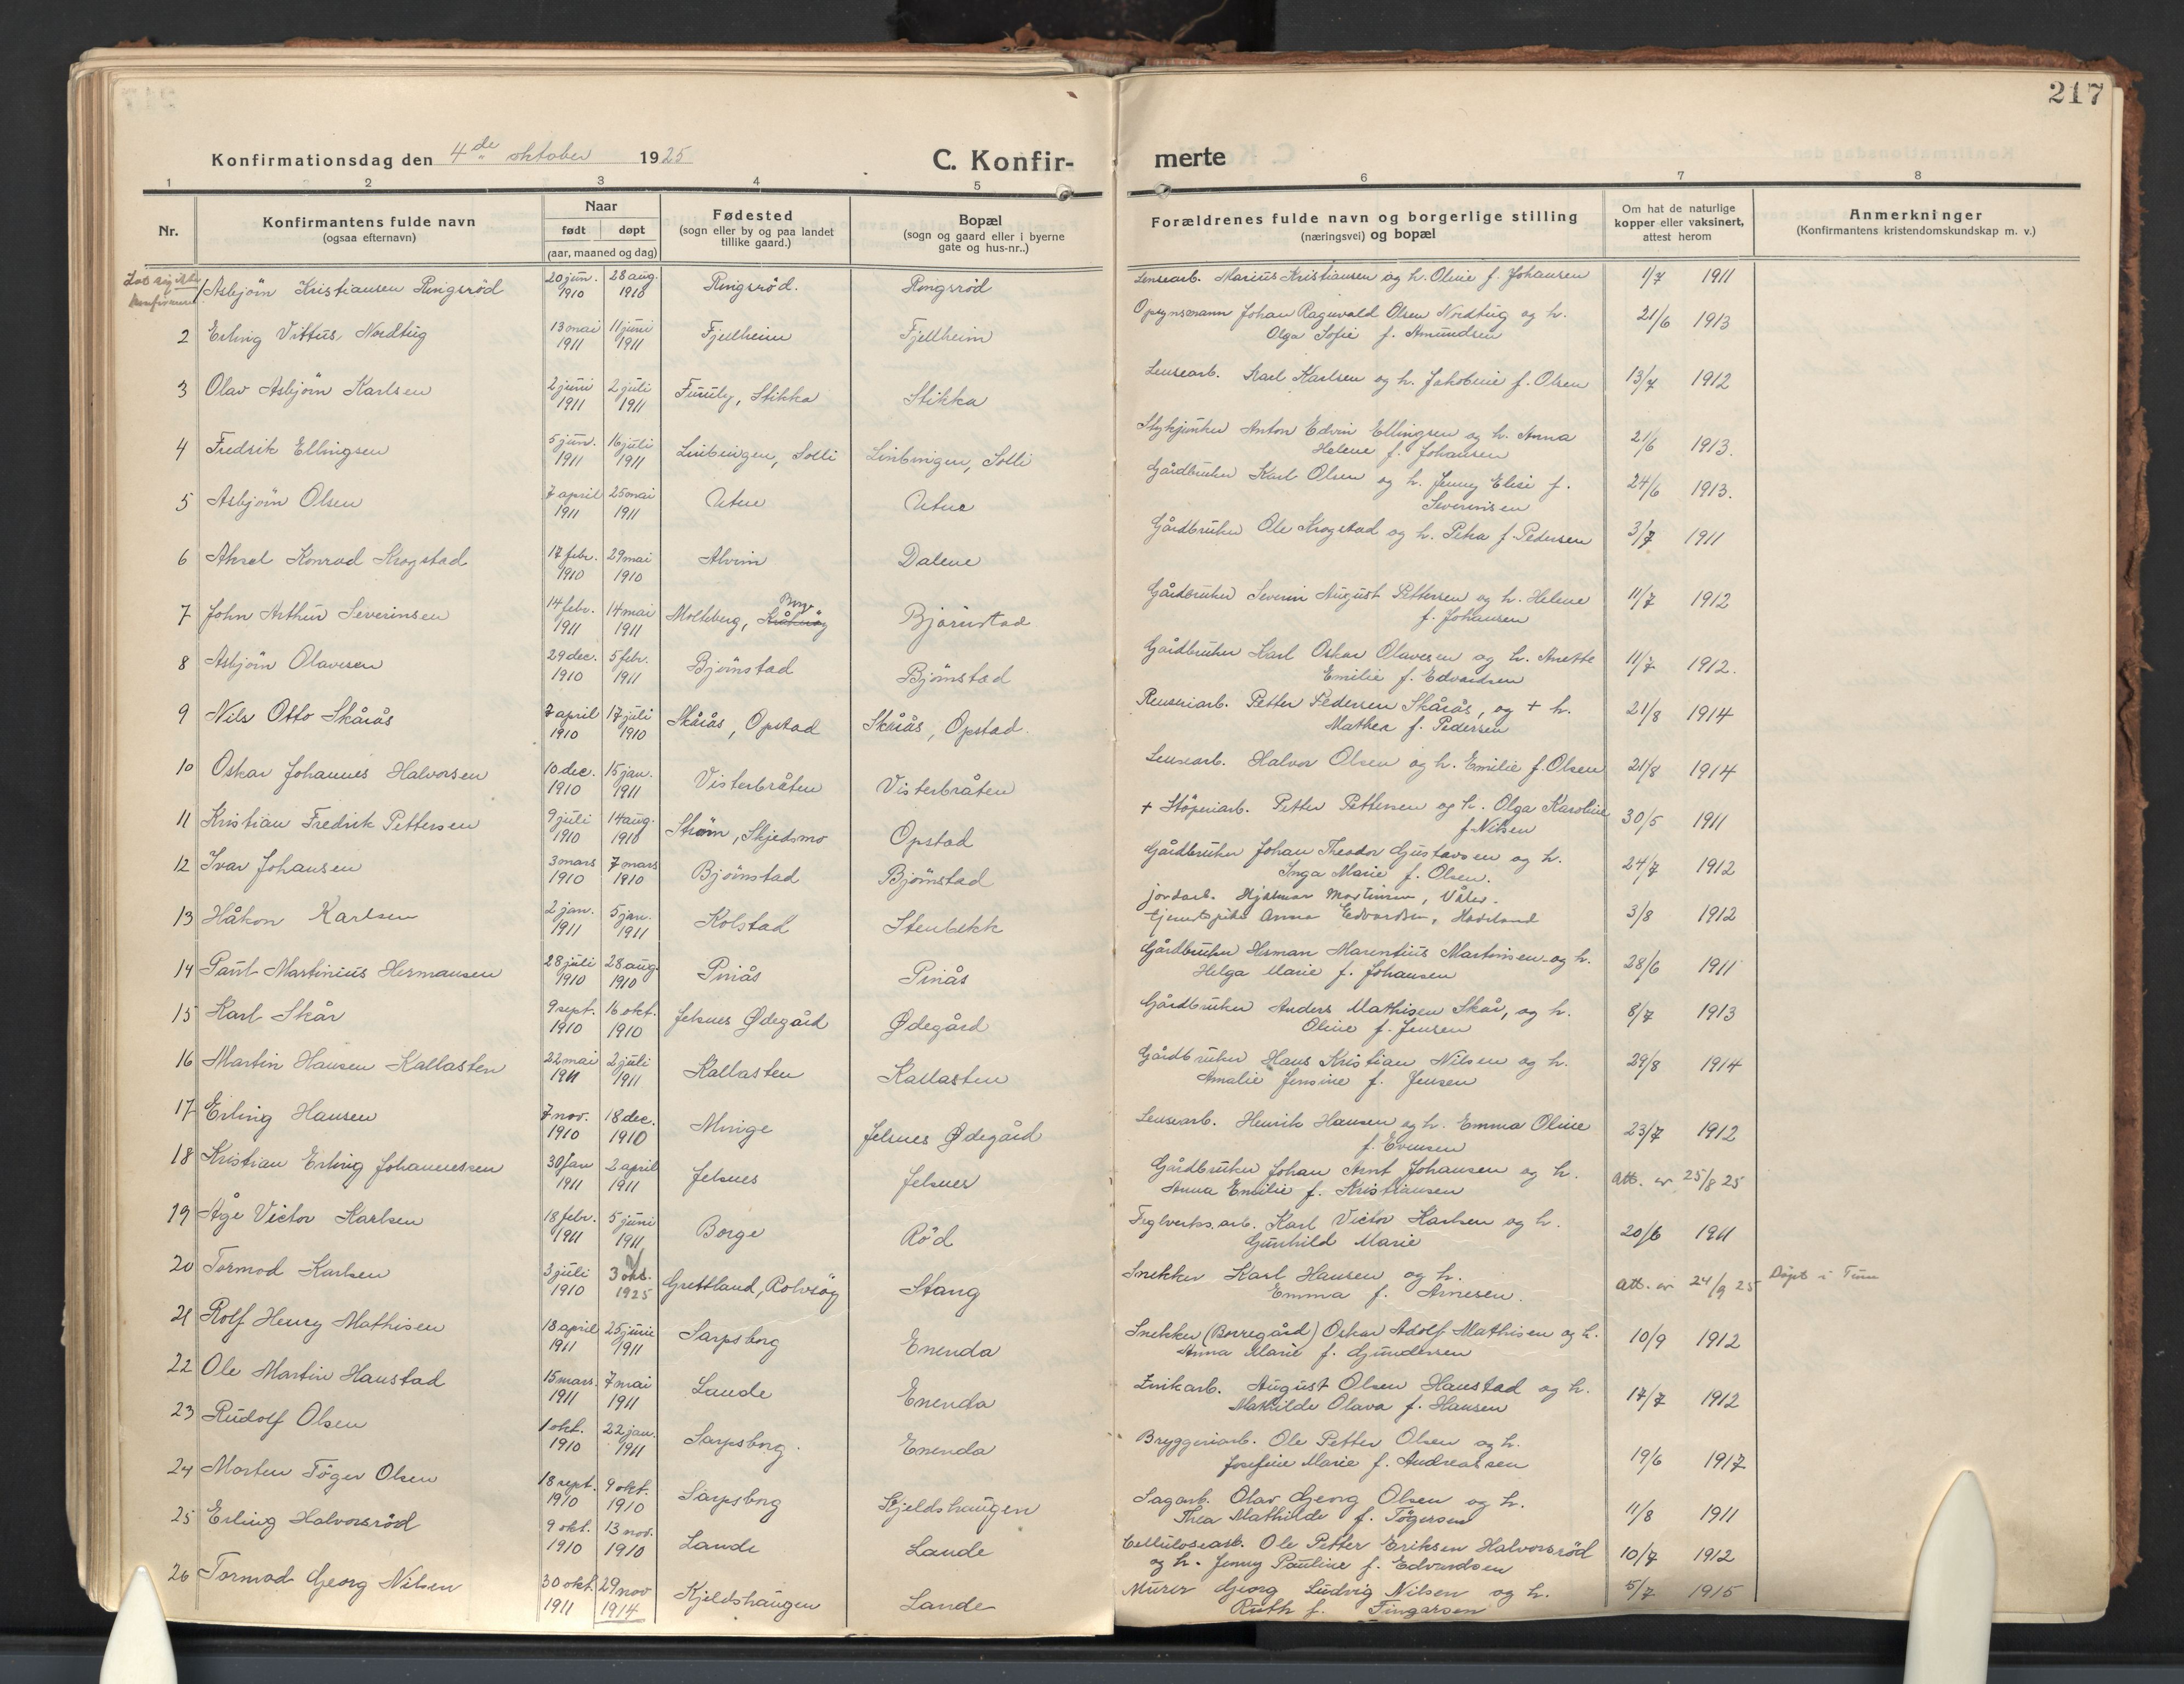 217
Konfirmationsdag den 4de oktober 1925
C. Konfir-
merte
1 2 3 4 5 6 7 8
Nr.
Konfirmantens fulde navn
(ogsaa efternavn)
Naar
født døpt
(aar, maaned og dag)
Fødested
(sogn eller by og paa landet
tillike gaard.)
Bopæl
(sogn og gaard eller i byerne
gate og hus-nr..)
Forældrenes fulde navn og borgerlige stilling
(næringsvei) og bopæl
Om hat de naturlige
kopper eller vaksinert,
attest herom
Anmerkninger
(Konfirmantens kristendomskundskap m. v.)
Lot sig ikke
konfirmere
1 Asbjörn Kristiansen Ringsröd 20 jun. 1910 28 aug. 1910 Ringsröd. Ringsröd Lensearb. Marius Kristiansen og h. Oline f. Johansen 1/7 1911
2 Erling Vittus Nordtug 13 mai 1911 11 juni 1911 Fjellheim Fjellheim Opsynsmann Johan Ragnvald Olsen Nordtug og h.
Olga Sofie f. Amundsen 21/6 1913
3 Olav Asbjörn Karlsen 2 juni 1911 2 juli 1911 Tuuly, Stikka Stikka Lensearb. Karl Karlsen og h. Jakobine f. Olsen 13/7 1912
4 Fredrik Ellingsen 5 jun. 1911 16 juli 1911 Solli Solli Stykjunker Anton Edvin Ellingsen og h. Anna
Helene f. Johansen 21/6 1913.
5 Asbjörn Olsen 7 april 1911 25 mai 1911 Utne Utne Gårdbruker Karl Olsen og h. Jenny Elise f.
Severinsen 24/6 1913.
6 Aksel Konrad Skogstad 17 febr. 1910 29 mai 1910 Alvim Dalene Gårdbruker Ole Skogstad og h. Petra f. Pedersen 3/7 1911
7 John Arthur Severinsen 14 febr. 1911 14 mai 1911 Molteberg, Borge Bjørnstad Gårdbruker Severin August Pettersen og h. Helene
f. Johansen 11/7 1912
8 Asbjörn Olavesen 29 dec. 1910 5 febr. 1911 Bjørnstad Bjørnstad Gårdbruker Karl Oskar Olavesen og h. Anette
Emilie f. Edvardsen 11/7 1912.
9 Nils Otto Skårås 7 april 1910 17 juli 1910 Skårås, Opstad Skårås, Opstad. Renseriarb. Petter Pedersen Skårås, og + h.
Mathea f. Pedersen 21/8 1914
10 Oskar Johannes Halvorsen 10 dec. 1910 15 jan. 1911 Visterbråten Visterbråten Lensearb. Halvor Olsen og h. Emilie f. Olsen 21/8 1914
11 Kristian Fredrik Pettersen 9 juli 1910 14 aug. 1910 Strøm, Skjedsmo Opstad + Stöperiarb. Petter Pettersen og h. Olga Karoline
f. Nilsen 30/5 1911
12 Ivar Johansen 3 mars 1910 7 mars 1910 Bjørnstad Bjørnstad Gårdbruker Johan Theodor Gustavsen og h.
Inga Marie f. Olsen. 24/7 1912
13 Håkon Karlsen 2 jan. 1911 5 jan. 1911 Kolstad Stenbekk jordarb. Hjalmar Martinsen, Våler.
tjenestepike Anna Edvardsen, Haveland 3/8 1912
14 Paul Martinius Hermansen 28 juli 1910 28 aug. 1910 Pinås Pinås Gårdbruker Herman Marentius Martinsen og h.
Helga Marie f. Johansen 28/6 1911
15 Karl Skår 9 sept. 1910 16 okt. 1910 Jelsnes Ødegård Ødegård Gårdbruker Anders Mathisen Skår, og h.
Oline f. Jensen 8/7 1913
16 Martin Hansen Kallasten 22 mai 1911 2 juli 1911 Kallasten Kallasten Gårdbruker Hans Kristian Nilsen og h.
Amalie Jensine f. Jensen 29/8 1914
17 Erling Hansen 7 nov. 1910 18 dec. 1910 Minge Jelsnes Ødegård Lensearb. Henrik Hansen og h. Emma Oline
f. Evensen 23/7 1912
18 Kristian Erling Johannessen 30 jan 1911 2 april 1911 Jelsnes Jelsnes Gårdbruker Johan Arnt Johansen og h.
Anna Emilie f. Kristiansen att. av 25/8 25
19 Åge Victor Karlsen 18 febr. 1911 5 juni 1911 Borge Röd Teglverks.arb. Karl Victor Karlsen og h.
Gunhild Marie 20/6 1911
20 Tormod Karlsen 3 juli 1910 3 okt. 1925 Grettland, Rolvsöy Stang Snekker Karl Hansen og h.
Emma f. Arnesen. att. av 24/9 25 Döpt i Tune
21 Rolf Henry Mathisen 18 april 1911 25 junie 1911 Sarpsborg Enenda Snekker (Borregård) Oskar Adolf Mathisen og h.
Anna Marie f. Gundersen 10/9 1912
22 Ole Martin Haustad 15 mars. 1911 7 mai 1911 Lande Enenda Zinkarb. August Olsen Haustad og h.
Mathilde Olava f. Hansen 17/7 1912
23 Rudolf Olsen 1 okt. 1910 22 jan. 1911 Sarpsborg. Enenda Bryggeriarb. Ole Petter Olsen og h.
Josefine Marie f. Andreassen 19/6 1917
24 Morten Töger Olsen 18 sept. 1910 9 okt. 1910 Sarpsborg Kjeldshaugen Sagarb. Olav Georg Olsen og h.
Thea Mathilde f. Tögersen 11/8 1911
25 Erling Halvorsröd 9 okt. 1910 13 nov. 1910 Lande Lande Cellulosearb. Ole Petter Eriksen Halvorsröd
og h. Jenny Pauline f. Edvardsen 10/7 1912
26 Tormod Georg Nilsen 30 okt. 1911 29 nov 1914 Kjeldshaugen Lande Murer Georg Ludvig Nilsen og h.
Ruth f. Fingarsen 5/7 1915